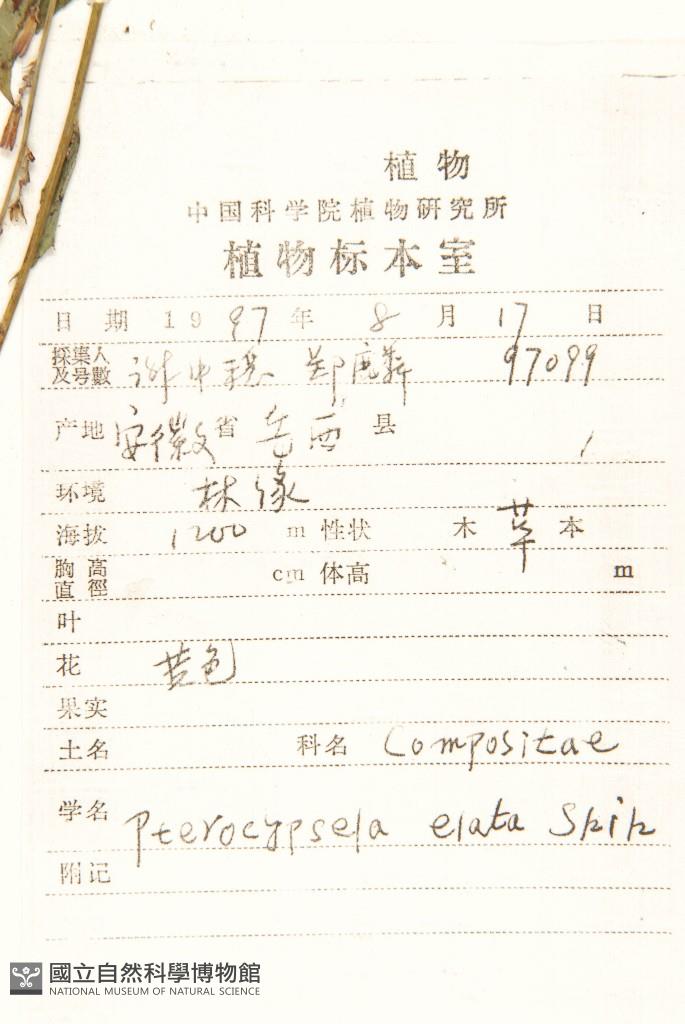 植物
中国科学院植物研究所
植物标本室
日期 1997年 8月 17日
採集人及号數 谢中稳 郑鹿麟 97099
产地 安徽省 岳西县
环境 林缘
海拔 1200 m 性状 木 草 本
胸高直徑 cm 体高 m
叶
花 黄色
果实
土名 科名 Compositae
学名 Pterocypsela elata Shih
附记
國立自然科學博物館
NATIONAL MUSEUM OF NATURAL SCIENCE